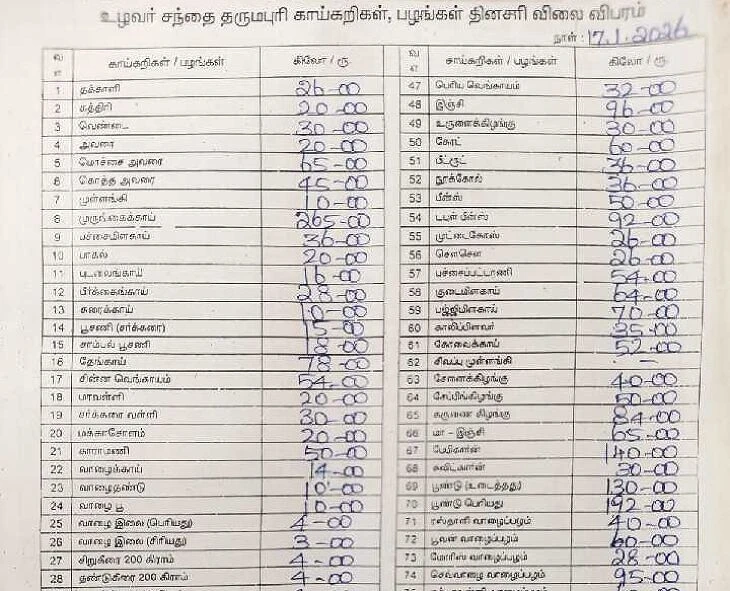 உழவர் சந்தை தருமபுரி காய்கறிகள், பழங்கள் தினசரி விலை விபரம்
நாள் : 17.1.2026
வ எ காய்கறிகள் / பழங்கள் கிலோ / ரூ.
1 தக்காளி 26-00
2 கத்திரி 20-00
3 வெண்டை 30-00
4 அவரை 20-00
5 மொச்சை அவரை 65-00
6 கொத்த அவரை 45-00
7 முள்ளங்கி 10-00
8 முருங்கைக்காய் 265-00
9 பச்சைமிளகாய் 36-00
10 பாகல் 20-00
11 புடலைங்காய் 16-00
12 பீர்க்கைங்காய் 28-00
13 சுரைக்காய் 10-00
14 பூசணி (சர்க்கரை) 15-00
15 சாம்பல் பூசணி 18-00
16 தேங்காய் 78-00
17 சின்ன வெங்காயம் 54-00
18 மாவள்ளி 20-00
19 சர்க்கரை வள்ளி 30-00
20 மக்காசோளம் 20-00
21 காராமணி 50-00
22 வாழைக்காய் 14-00
23 வாழைதண்டு 10-00
24 வாழை பூ 10-00
25 வாழை இலை (பெரியது) 4-00
26 வாழை இலை (சிரியது) 3-00
27 சிறுகீரை 200 கிராம் 4-00
28 தண்டுகீரை 200 கிராம் 4-00
வ எ காய்கறிகள் / பழங்கள் கிலோ / ரூ
47 பெரிய வெங்காயம் 32-00
48 இஞ்சி 96-00
49 உருளைக்கிழங்கு 30-00
50 கேரட் 60-00
51 பீட்ரூட் 36-00
52 நூக்கோல் 36-00
53 பீன்ஸ் 50-00
54 டபுள் பீன்ஸ் 92-00
55 முட்டைகோஸ் 26-00
56 சௌசௌ 26-00
57 பச்சைப்பட்டாணி 54-00
58 குடைமிளகாய் 64-00
59 பஜ்ஜிமிளகாய் 70-00
60 காலிப்பிளவர் 35-00
61 கோவைக்காய் 52-00
62 சிவப்பு முள்ளங்கி –
63 சேனைக்கிழங்கு 40-00
64 சேப்பங்கிழங்கு 50-00
65 கருணை கிழங்கு 84-00
66 மா – இஞ்சி 65-00
67 பேபிகார்ன் 140-00
68 சுவிட்கார்ன் 30-00
69 பூண்டு (உடைத்தது) 130-00
70 பூண்டு பெரியது 192-00
71 ரஸ்தாளி வாழைப்பழம் 40-00
72 பூவன் வாழைப்பழம் 60-00
73 மோரிஸ் வாழைப்பழம் 28-00
74 செவ்வாழை வாழைப்பழம் 95-00